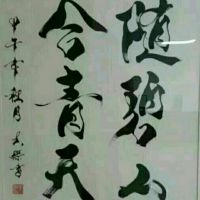 随碧山
合青天
甲午年秋月